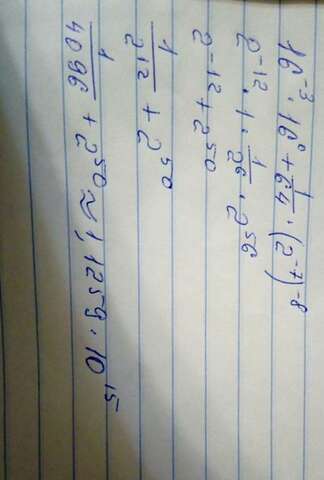 16⁻³ · 16⁰ + 1/64 · (2⁻⁷)⁻⁸
2⁻¹² · 1 · 1/26 · 2⁵⁶
2⁻¹² + 2⁵⁰
1/2¹² + 2⁵⁰
1/4096 + 2⁵⁰ ≈ 1,1259 · 10¹⁵